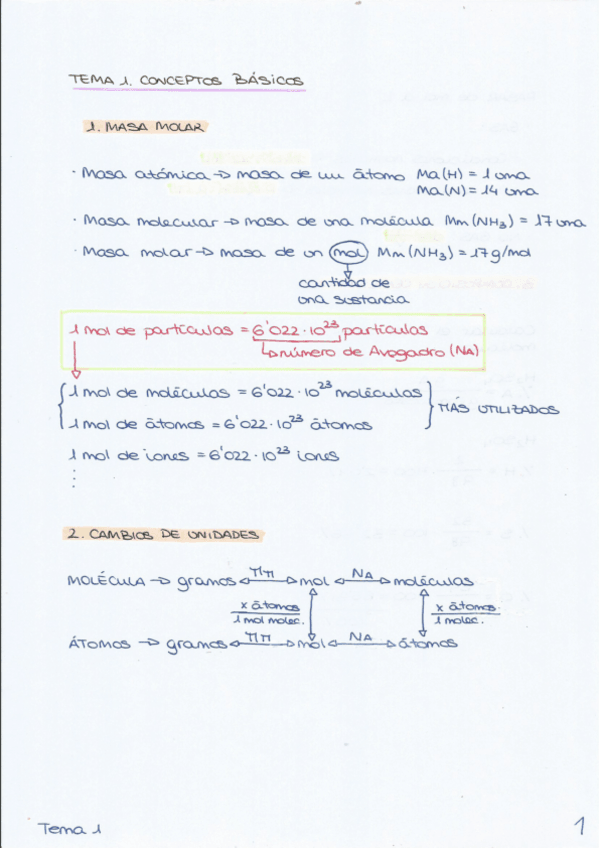 TEMA 1. CONCEPTOS BÁSICOS
1. MASA MOLAR
· Masa atómica → masa de un átomo Ma(H) = 1 uma
Ma(N) = 14 uma
· Masa molecular → masa de una molécula Mm(NH₃) = 17 uma
· Masa molar → masa de un mol Mm(NH₃) = 17 g/mol
cantidad de
una sustancia
1 mol de partículas = 6'022·10²³ partículas
número de Avogadro (NA)
1 mol de moléculas = 6'022·10²³ moléculas
MÁS UTILIZADOS
1 mol de átomos = 6'022·10²³ átomos
1 mol de iones = 6'022·10²³ iones
⋮
2. CAMBIOS DE UNIDADES
MOLÉCULA → gramos ↔ Mm mol ↔ NA moléculas
x átomos x átomos
1 mol molec. 1 molec.
ÁTOMOS → gramos ↔ Mm mol ↔ NA átomos
Tema 1 1